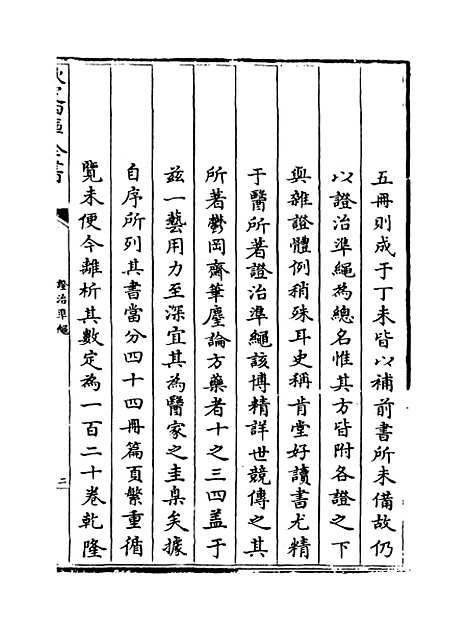 五冊則成于丁未皆以補前書所未備故仍
以證治準繩為總名惟其方皆附各證之下
與雜證體例稍殊耳史稱肯堂好讀書尤精
于醫所著證治準繩該博精詳世競傳之其
所著鬱岡齋筆麈論方藥者十之三四蓋于
兹一藝用力至深宜其為醫家之圭臬矣據
自序所列其書當分四十四冊篇頁繁重循
覽未便今離析其數定為一百二十卷乾隆
欽定四庫全書
證治準繩
二